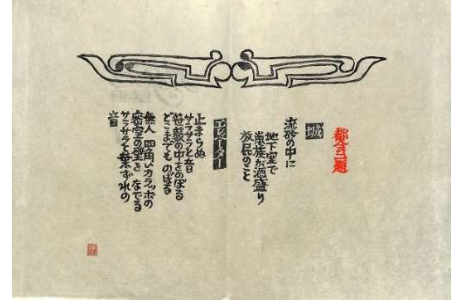 都会三題
城
流砂の中に
地下室で
貴族が酒盛り
放民のこと
エレベーター
止まらぬ
サラサラと音
笹藪の中をのぼる
どこまでものぼる
無人 四角いカラッポの
密室の壁をなでる
サラサラと葉ずれの
音